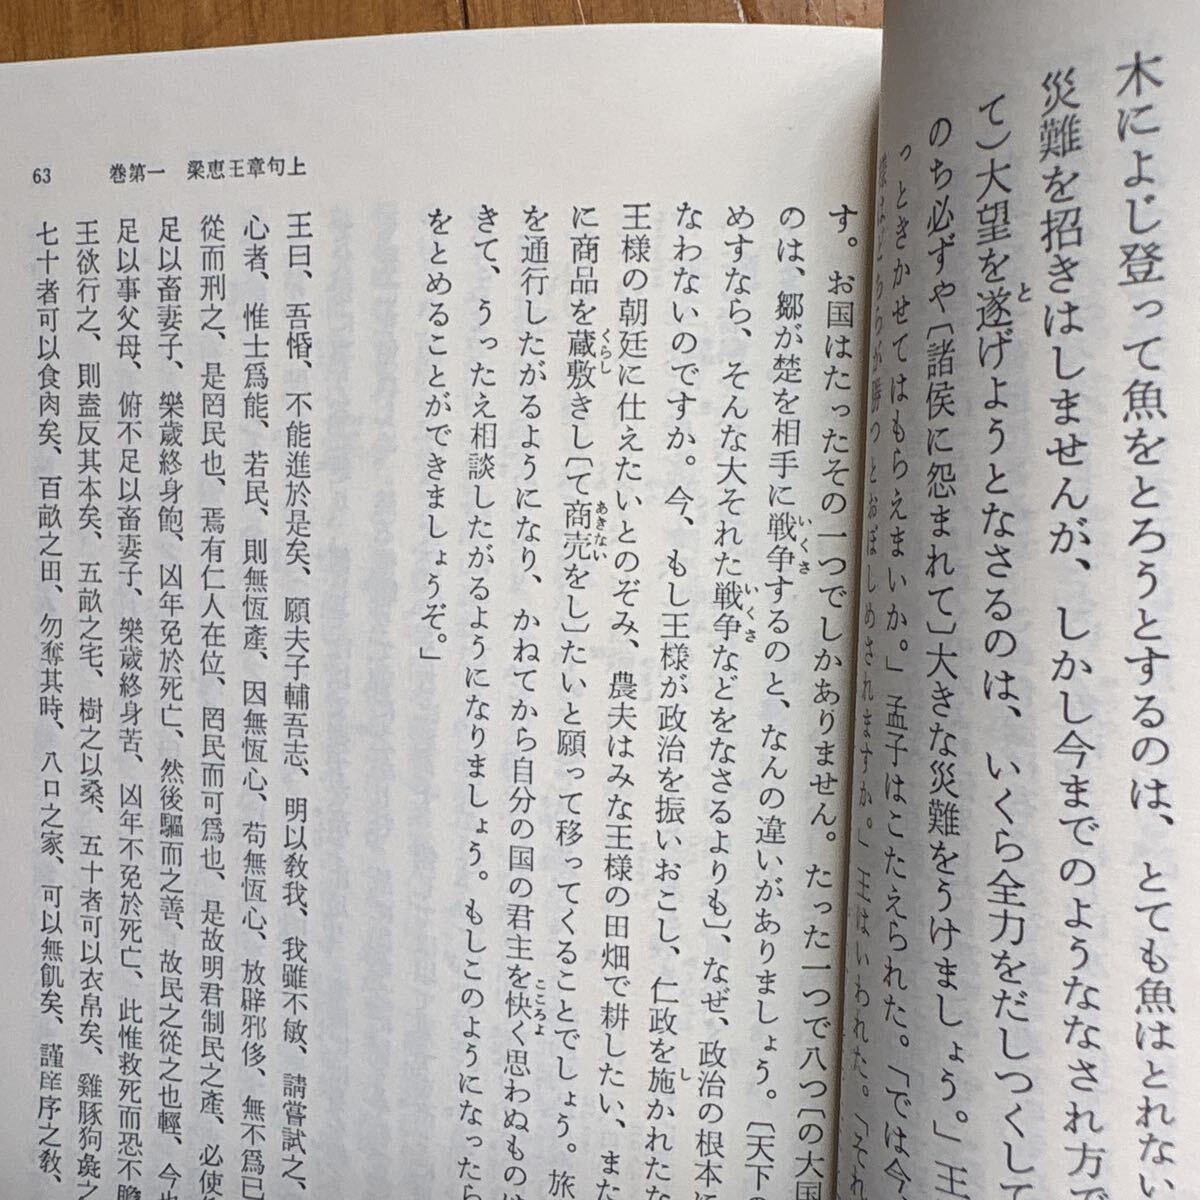 木によじ登って魚をとろうとするのは、とても魚はとれない
災難を招きはしませんが、しかし今までのようななされ方で
て)大望を遂げようとなさるのは、いくら全力をだしつくして
のち必ずや〔諸侯に怨まれて〕大きな災難をうけましょう。」王
っときかせてはもらえまいか。」孟子はこたえられた。「では今
はどちらが勝つとおぼしめされますか。」王はいわれた。「それ
63 巻第一 梁恵王章句上
す。お国はたったその一つでしかありません。たった一つで八つ〔の大国
のは、鄒が楚を相手に戦争するのと、なんの違いがありましょう。〔天下の
めすなら、そんな大それた戦争などをなさるよりも〕、なぜ、政治の根本に
なわないのですか。今、もし王様が政治を振いおこし、仁政を施かれたな
王様の朝廷に仕えたいとのぞみ、農夫はみな王様の田畑で耕したい、また
に商品を蔵敷きし〔て商売をし〕たいと願って移ってくることでしょう。旅
を通行したがるようになり、かねてから自分の国の君主を快く思わぬものは
きて、うったえ相談したがるようになりましょう。もしこのようになったら
をとめることができましょうぞ。」
王曰、吾惛、不能進於是矣、願夫子輔吾志、明以敎我、我雖不敏、請嘗試之、
心者、惟士爲能、若民、則無恆產、因無恆心、苟無恆心、放辟邪侈、無不爲已
從而刑之、是罔民也、焉有仁人在位、罔民而可爲也、是故明君制民之產、必使
足以畜妻子、樂歲終身飽、凶年免於死亡、然後驅而之善、故民之從之也輕、今也
足以事父母、俯不足以畜妻子、樂歲終身苦、凶年不免於死亡、此惟救死而恐不贍
王欲行之、則盍反其本矣、五畝之宅、樹之以桑、五十者可以衣帛矣、雞豚狗彘之
七十者可以食肉矣、百畝之田、勿奪其時、八口之家、可以無飢矣、謹庠序之敎、